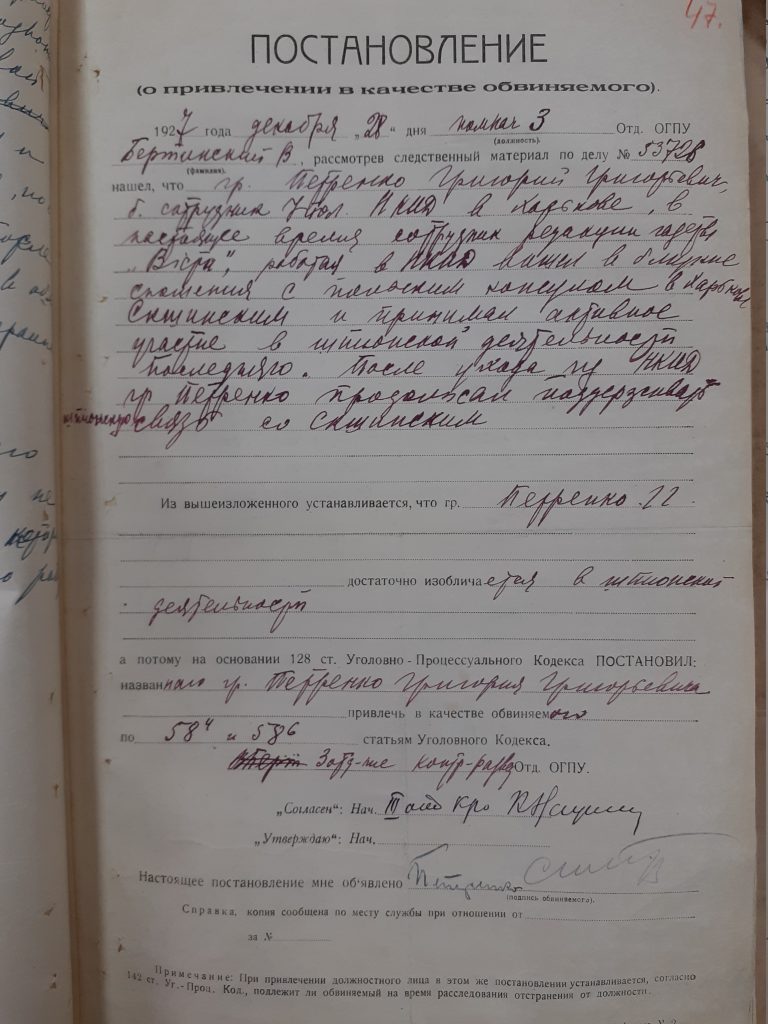 47.
ПОСТАНОВЛЕНИЕ
(о привлечении в качестве обвиняемого).
1927 года декабря „28“ дня помнач 3 Отд. ОГПУ
(должность).
Бертинский В, рассмотрев следственный материал по делу № 53728
(фамилия).
нашел, что гр. Петренко Григорий Григорьевич,
б. сотрудник Упол. НКИД в Харькове, в
настоящее время сотрудник редакции газеты
„Вiстi“, работая в НКИД вошел в близкие
сношения с польским консулом в Харькове
и принимал активное
участие в шпионской деятельности
последнего. После ухода из НКИД
гр Петренко продолжал поддерживать
шпионскую связь со
Из вышеизложенного устанавливается, что гр. Петренко Г.Г.
достаточно изобличается в шпионской
деятельности
а потому на основании 128 ст. Уголовно-Процессуального Кодекса ПОСТАНОВИЛ:
названного гр. Петренко Григория Григорьевича
привлечь в качестве обвиняемого
по 58⁴ и 58⁶ статьям Уголовного Кодекса.
Отд. ОГПУ.
„Согласен“: Нач. КРО
„Утверждаю“: Нач.
Настоящее постановление мне об'явлено Петренко
(подпись обвиняемого).
Справка, копия сообщена по месту службы при отношении от
за №
Примечание: При привлечении должностного лица в этом же постановлении устанавливается, согласно
142 ст. Уг.-Проц. Код., подлежит ли обвиняемый на время расследования отстранения от должности.